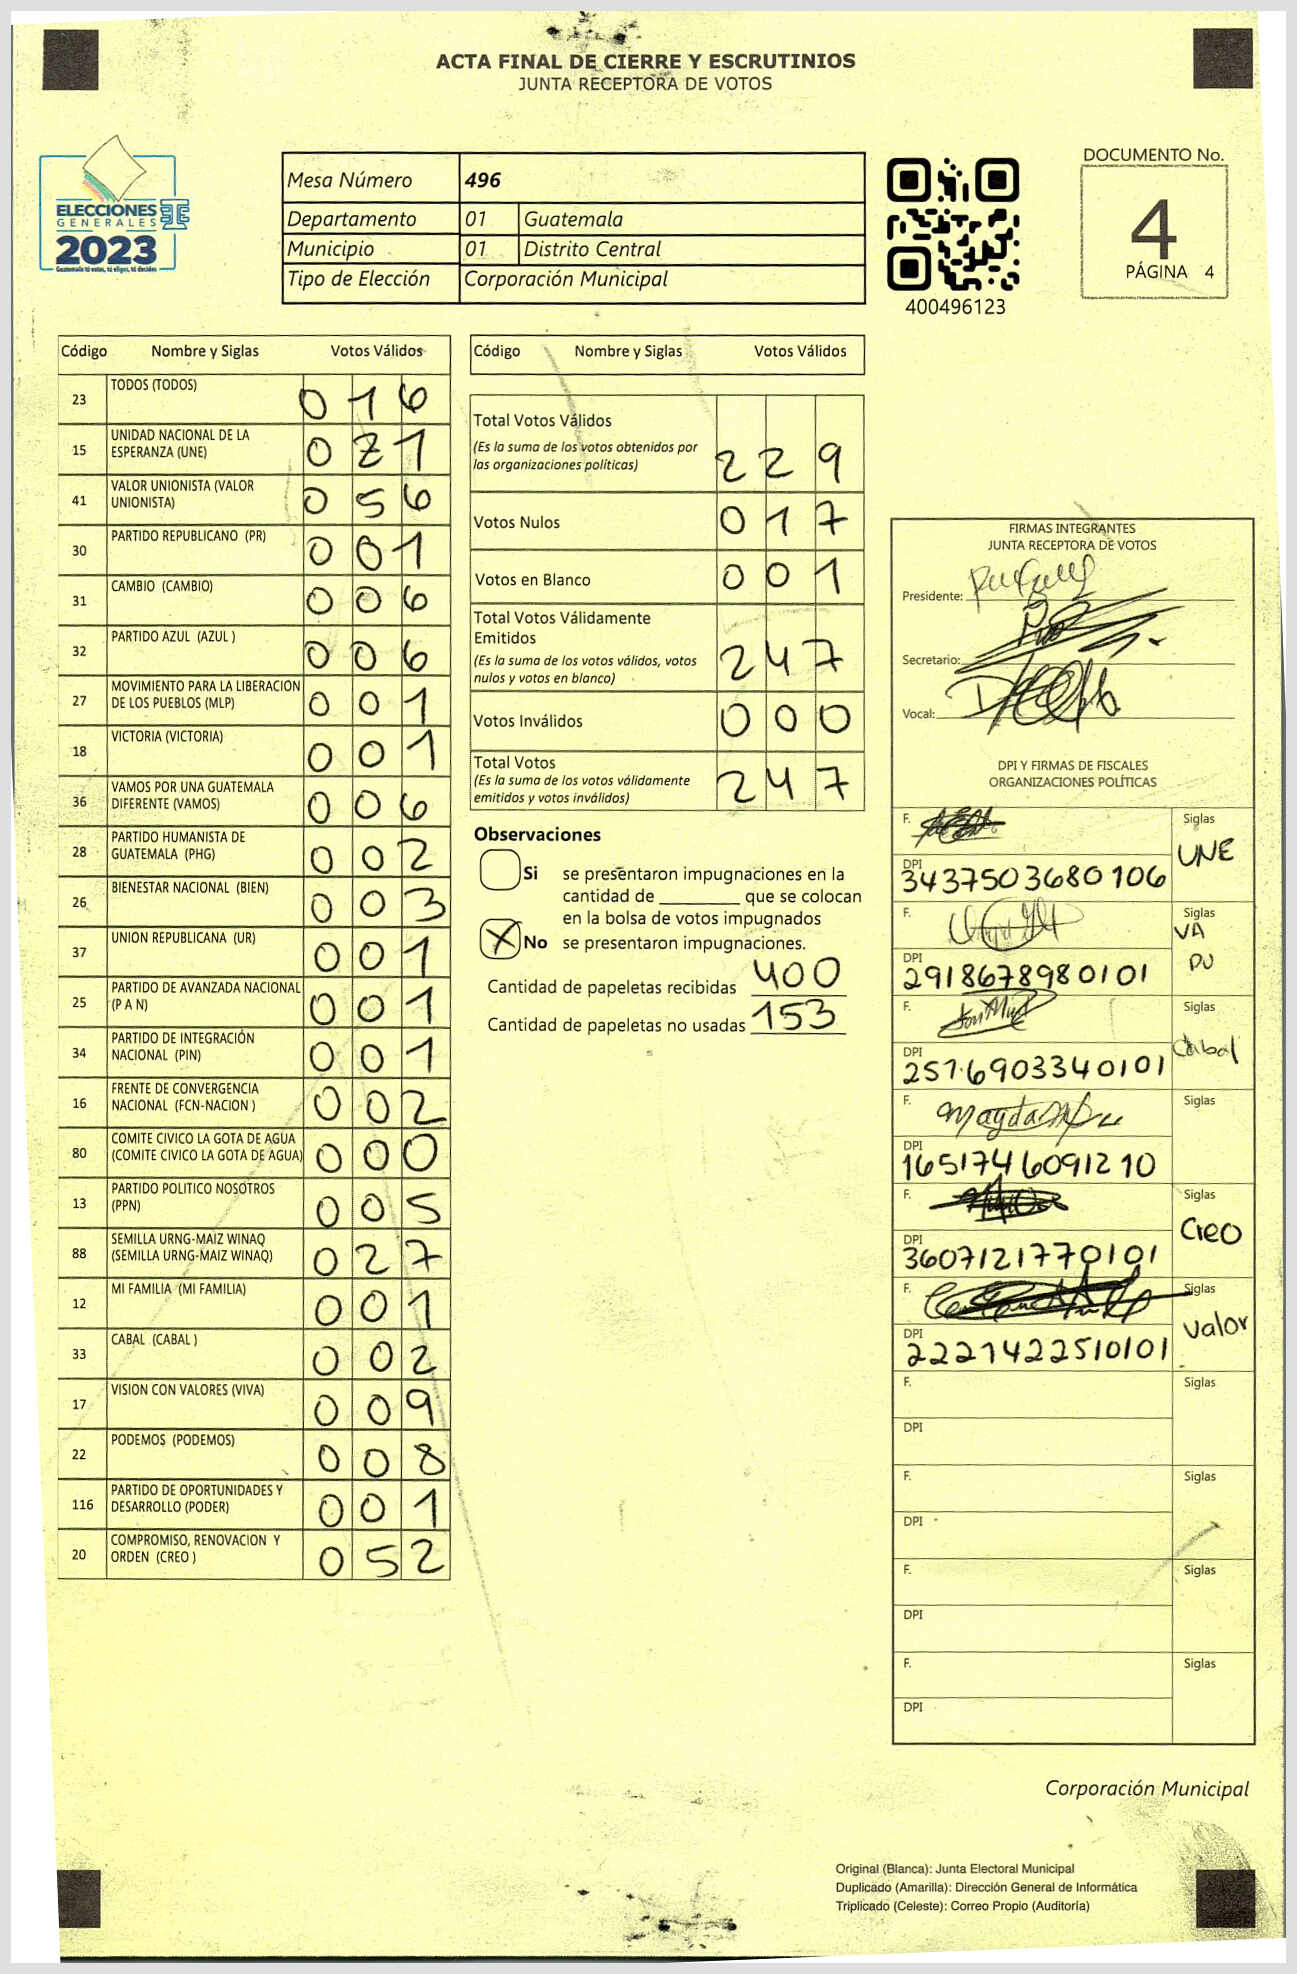 ACTA FINAL DE CIERRE Y ESCRUTINIOS
JUNTA RECEPTORA DE VOTOS
ELECCIONES
GENERALES
2023
Guatemala tú votas, tú eliges, tú decides
Mesa Número 496
Departamento 01 Guatemala
Municipio 01 Distrito Central
Tipo de Elección Corporación Municipal
400496123
DOCUMENTO No.
4
PÁGINA 4
Código Nombre y Siglas Votos Válidos
23 TODOS (TODOS) 016
15 UNIDAD NACIONAL DE LA ESPERANZA (UNE) 021
41 VALOR UNIONISTA (VALOR UNIONISTA) 056
30 PARTIDO REPUBLICANO (PR) 001
31 CAMBIO (CAMBIO) 006
32 PARTIDO AZUL (AZUL ) 006
27 MOVIMIENTO PARA LA LIBERACION DE LOS PUEBLOS (MLP) 001
18 VICTORIA (VICTORIA) 001
36 VAMOS POR UNA GUATEMALA DIFERENTE (VAMOS) 006
28 PARTIDO HUMANISTA DE GUATEMALA (PHG) 002
26 BIENESTAR NACIONAL (BIEN) 003
37 UNION REPUBLICANA (UR) 001
25 PARTIDO DE AVANZADA NACIONAL (P A N) 001
34 PARTIDO DE INTEGRACIÓN NACIONAL (PIN) 001
16 FRENTE DE CONVERGENCIA NACIONAL (FCN-NACION ) 002
80 COMITE CIVICO LA GOTA DE AGUA (COMITE CIVICO LA GOTA DE AGUA) 000
13 PARTIDO POLITICO NOSOTROS (PPN) 005
88 SEMILLA URNG-MAIZ WINAQ (SEMILLA URNG-MAIZ WINAQ) 027
12 MI FAMILIA (MI FAMILIA) 001
33 CABAL (CABAL ) 002
17 VISION CON VALORES (VIVA) 009
22 PODEMOS (PODEMOS) 008
116 PARTIDO DE OPORTUNIDADES Y DESARROLLO (PODER) 001
20 COMPROMISO, RENOVACION Y ORDEN (CREO ) 052
Código Nombre y Siglas Votos Válidos
Total Votos Válidos
(Es la suma de los votos obtenidos por
las organizaciones políticas) 229
Votos Nulos 017
Votos en Blanco 001
Total Votos Válidamente
Emitidos
(Es la suma de los votos válidos, votos
nulos y votos en blanco) 247
Votos Inválidos 000
Total Votos
(Es la suma de los votos válidamente
emitidos y votos inválidos) 247
Observaciones
Si se presentaron impugnaciones en la
cantidad de ________ que se colocan
en la bolsa de votos impugnados
X No se presentaron impugnaciones.
Cantidad de papeletas recibidas 400
Cantidad de papeletas no usadas 153
FIRMAS INTEGRANTES
JUNTA RECEPTORA DE VOTOS
Presidente:
Secretario:
Vocal:
DPI Y FIRMAS DE FISCALES
ORGANIZACIONES POLÍTICAS
F. Siglas
UNE
DPI
3437503680106
F. Siglas
VA
DPI
2918678980101
F. Siglas
Cabal
DPI
2576903340101
F. Siglas
DPI
1651746091210
F. Siglas
Creo
DPI
3607121770101
F. Siglas
Valor
DPI
2221422510101
F. Siglas
DPI
F. Siglas
DPI
F. Siglas
DPI
F. Siglas
DPI
Corporación Municipal
Original (Blanca): Junta Electoral Municipal
Duplicado (Amarilla): Dirección General de Informática
Triplicado (Celeste): Correo Propio (Auditoría)